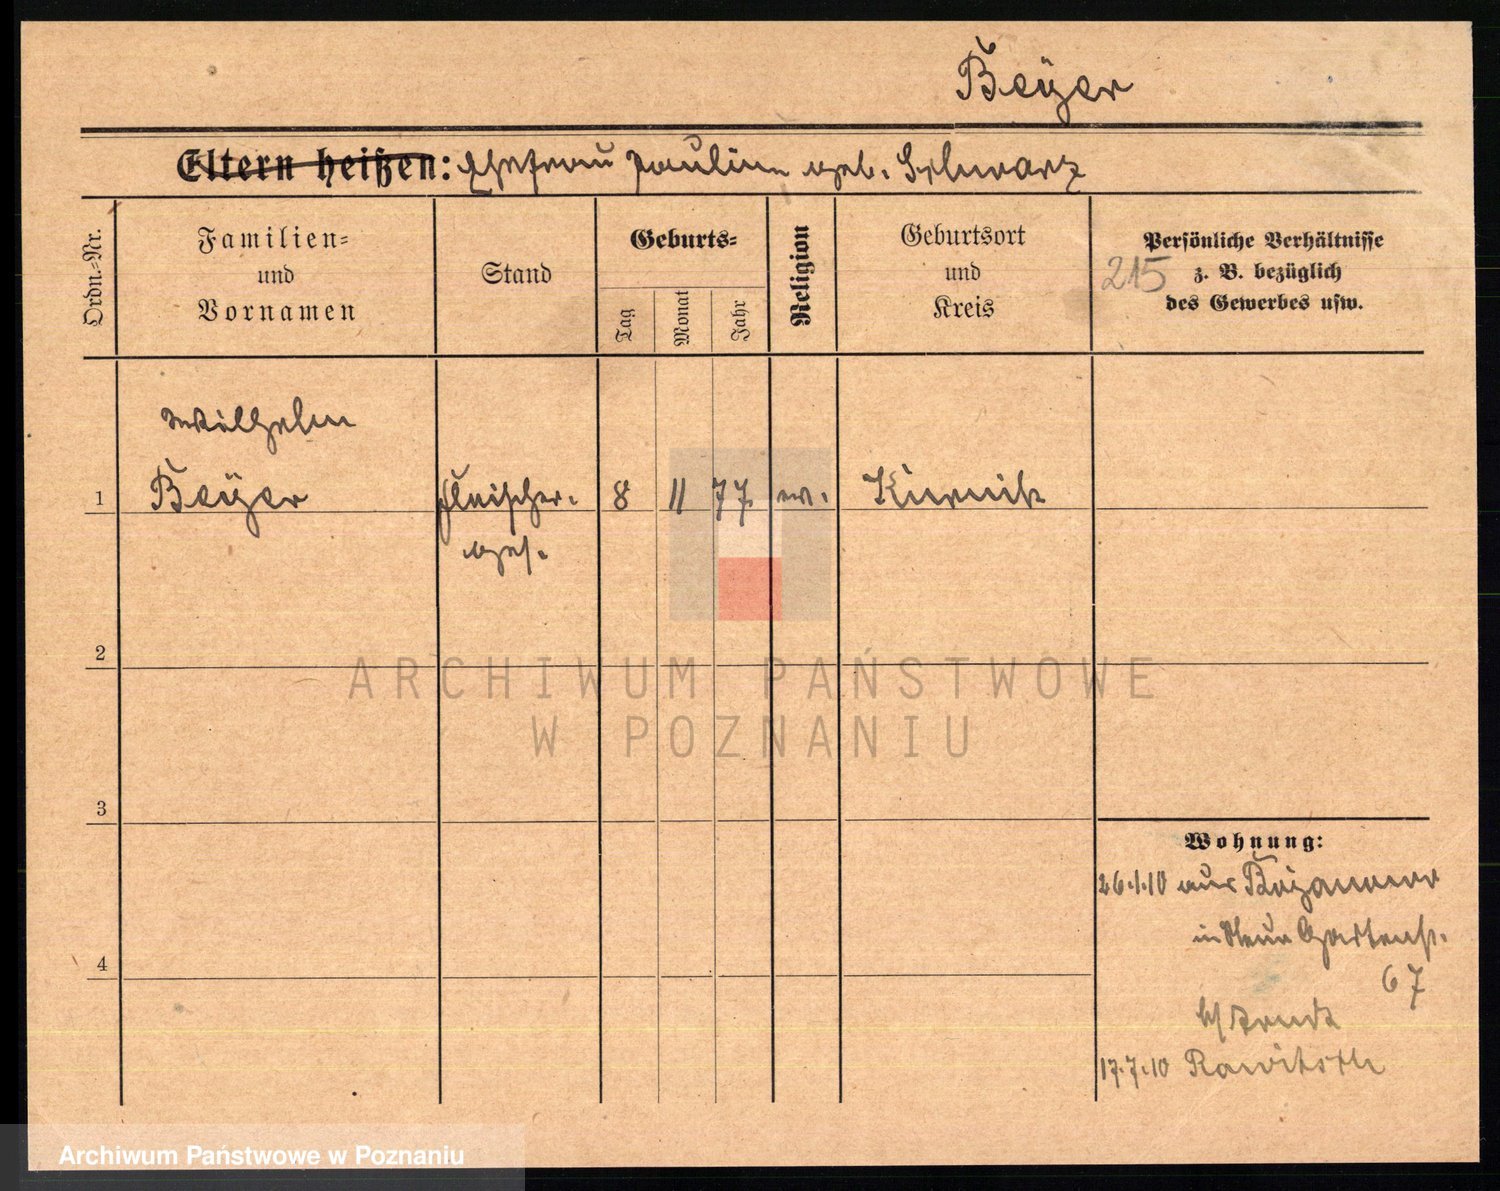 Beÿer
Eltern heißen: Ehefrau Pauline geb. Schwarz
Ordn.=Nr.
Familien=
und
Vornamen
Stand
Geburts=
Tag
Monat
Jahr
Religion
Geburtsort
und
Kreis
Persönliche Verhältnisse
215 z. B. bezüglich
des Gewerbes usw.
Wilhelm
1 Beÿer Fleischer- 8 11 77 ev. Kurnik
ges.
2
3
4
Wohnung:
26.1.10 aus
in Neue Gartenst.
67
b/ Arndt
17.7.10 Rawitsch
ARCHIWUM PAŃSTWOWE
W POZNANIU
Archiwum Państwowe w Poznaniu